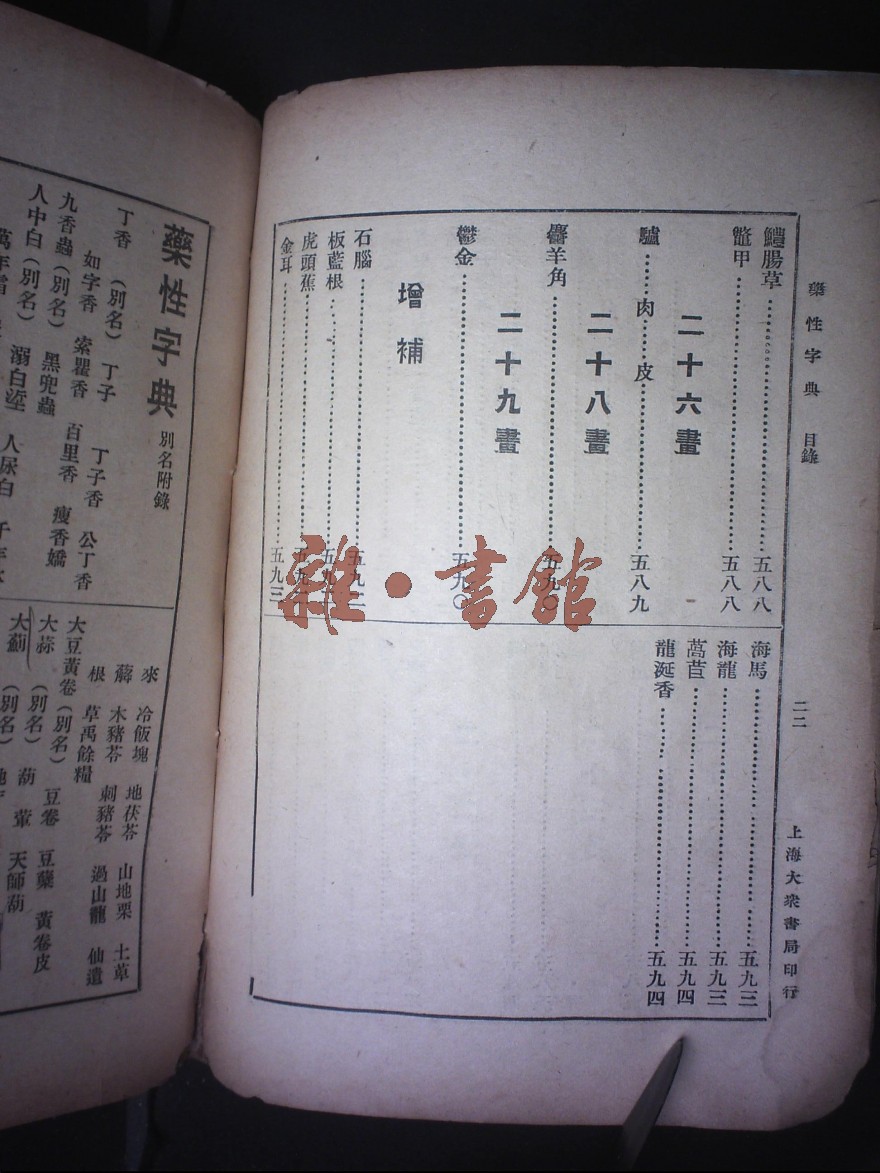 藥性字典 目錄
二二
上海大衆書局印行
鱧腸草 五八八
鼈甲 五八八
二十六畫
驢 肉 皮 五八九
二十八畫
麢羊角 五九〇
二十九畫
鬱金 五九〇
增補
石腦
板藍根
虎頭蕉
金耳 五九三
海馬 五九三
海龍 五九三
萵苣 五九四
龍涎香 五九四
雜·書館
藥性字典 別名附錄
丁香 (別名) 丁子 丁子香 公丁香
如字香 索瞿香 百里香 瘦香嬌
九香蟲(別名) 黑兜蟲
人中白(別名) 溺白垽 人尿白
來 冷飯塊 地茯苓 山地栗 土萆
薢 木豬苓 刺豬苓 過山龍 仙遺
根 草禹餘糧
大豆黃卷(別名) 豆卷 豆蘗 黃卷皮
大蒜 (別名) 葫 葷 天師葫
大薊 (別名)